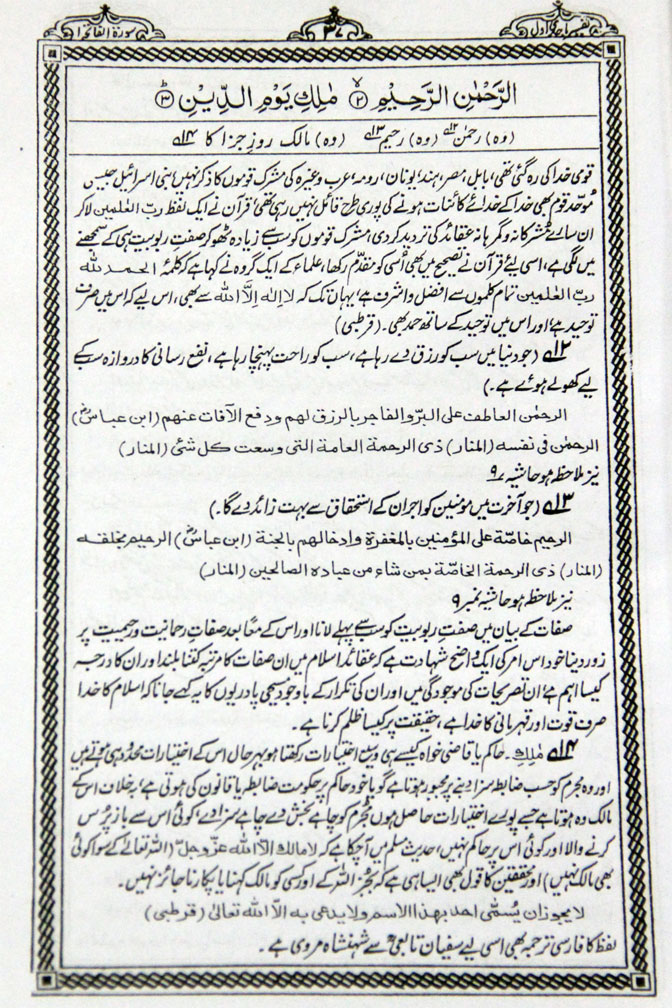 تفسیر ماجدی اول ۳۷ سورة الفاتحة ۱
الرَّحْمٰنِ الرَّحِيْمِ ۙ﴿۲﴾ مٰلِكِ يَوْمِ الدِّيْنِ ؕ﴿۳﴾
(وہ) رحمٰن ۱۲؎ (وہ) رحیم ۱۳؎ (وہ) مالک روزِ جزا کا ۱۴؎
قومی خدا کی رہ گئی تھی، بابل، مصر، ہند، یونان، رومہ، عرب وغیرہ کی مشرک قوموں کا ذکر نہیں بنی اسرائیل جیسی
مُوحّد قوم بھی خدا کے خدائے کائنات ہونے کی پوری طرح قائل نہیں رہی تھی، قرآن نے ایک لفظ ربّ العٰلمین لاکر
ان سارے مشرکانہ و گمرہانہ عقائد کی تردید کر دی، مشرک قوموں کو سب سے زیادہ ٹھوکر صفتِ ربوبیت ہی کے سمجھنے
میں لگی ہے، اسی لئے قرآن نے تصحیح میں بھی اُسی کو مقدّم رکھا، علماء کے ایک گروہ نے کہا ہے کہ کلمۂ الحمد للہ
ربّ العٰلمین تمام کلموں سے افضل واشرف ہے، یہاں تک کہ لا اِلٰہ اِلّا اللہ سے بھی، اس لیے کہ اس میں صرف
توحید ہے، اور اس میں توحید کے ساتھ حمد بھی۔ (قرطبی)
۱۲؎ (جو دنیا میں سب کو رزق دے رہا ہے، سب کو راحت پہنچا رہا ہے، نفع رسانی کا دروازہ سب کے
لیے کھولے ہوئے ہے۔)
الرحمٰن العاطف علی البرّ والفاجر بالرزق لهم ودفع الآفات عنهم (ابن عباسؓ)
الرحمٰن فی نفسه (المنار) ذی الرحمة العامة التی وسعت کل شئ (المنار)
نیز ملاحظہ ہو حاشیہ ۹
۱۳؎ (جو آخرت میں مومنین کو اجر ان کے استحقاق سے بہت زائد دے گا۔)
الرحیم خاصّة علی المؤمنین بالمغفرة وادخالهم بالجنة (ابن عباسؓ) الرحیم بخلقه
(المنار) ذی الرحمة الخاصّة بمن شاء من عباده الصالحین (المنار)
نیز ملاحظہ ہو حاشیہ نمبر ۹
صفات کے بیان میں صفتِ ربوبیت کو سب سے پہلے لانا اور اس کے معًا بعد صفاتِ رحمانیت و رحیمیت پر
زور دینا خود اس امر کی ایک واضح شہادت ہے کہ عقائد اسلام میں ان صفات کا مرتبہ کتنا بلند اور ان کا درجہ
کیسا اہم ہے، ان تصریحات کی موجودگی میں اور ان کی تکرار کے باوجود مسیحی پادریوں کا یہ کہے جانا کہ اسلام کا خدا
صرف قوت اور قہرمانی کا خدا ہے، حقیقت پر کیسا ظلم کرنا ہے۔
۱۴؎ مٰلِكِ۔ حاکم یا قاضی خواہ کیسے ہی وسیع اختیارات رکھتا ہو بہر حال اس کے اختیارات محدود ہی ہوتے ہیں
اور وہ مجرم کو حسب ضابطہ سزا دینے پر مجبور ہوتا ہے گویا خود حاکم پر حکومت ضابطہ یا قانون کی ہوتی ہے، برخلاف اس کے
مالک وہ ہوتا ہے جسے پورے اختیارات حاصل ہوں مجرم کو چاہے بخش دے چاہے سزا دے، کوئی اُس سے باز پُرس
کرنے والا اور کوئی اس پر حاکم نہیں، حدیث مسلم میں آچکا ہے کہ لا مالك الّا اللہ عزّ وجلّ (اللہ تعالےٰ کے سوا کوئی
بھی مالک نہیں) اور محققین کا قول بھی ایسا ہی ہے کہ بجُز اللہ کے اور کسی کو مالک کہنا یا پکارنا جائز نہیں۔
لا یجوز ان یُسمّٰی احد بهذا الاسم ولا یدعٰی به الّا اللہ تعالیٰ (قرطبی)
لفظ کا فارسی ترجمہ بھی اسی لیے سفیان تابعیؒ سے شہنشاہ مروی ہے۔